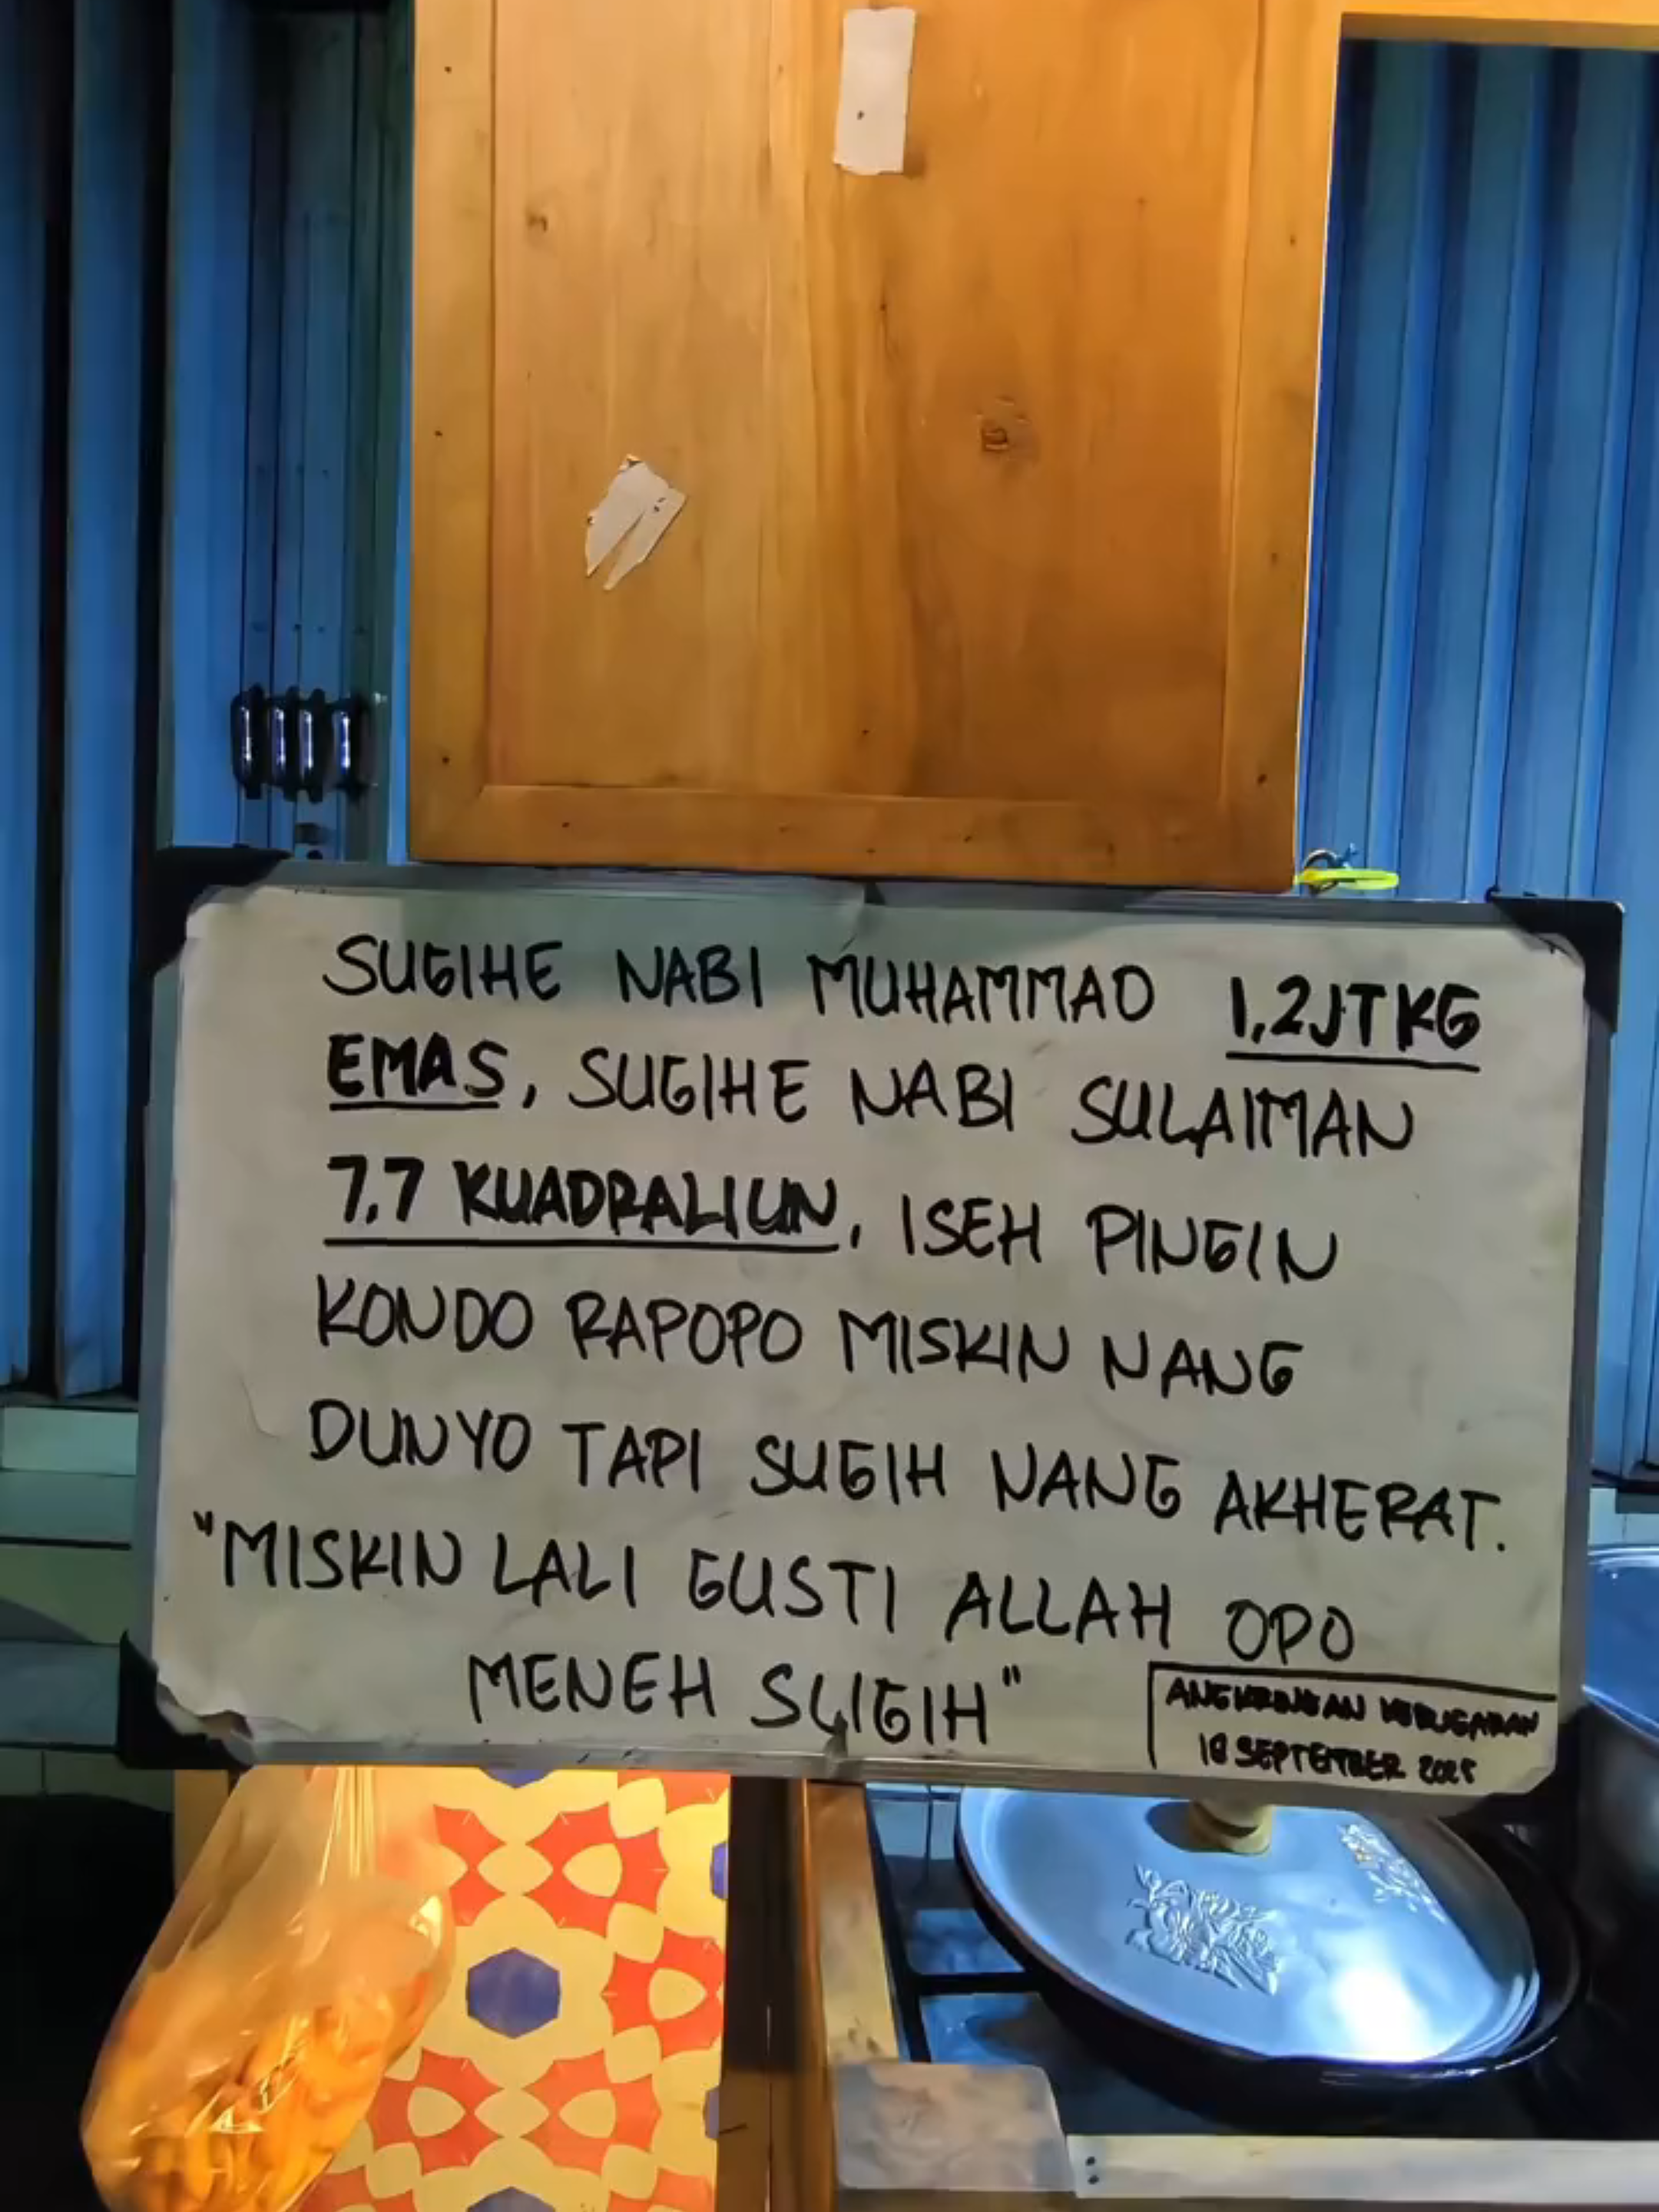 SUGIHE NABI MUHAMMAD 1,2JT KG
EMAS, SUGIHE NABI SULAIMAN
7,7 KUADRALIUN, ISEH PINGIN
KONDO RAPOPO MISKIN NANG
DUNYO TAPI SUGIH NANG AKHERAT.
"MISKIN LALI GUSTI ALLAH OPO
MENEH SUGIH"
ANGKRINGAN
18 SEPTEMBER 2025